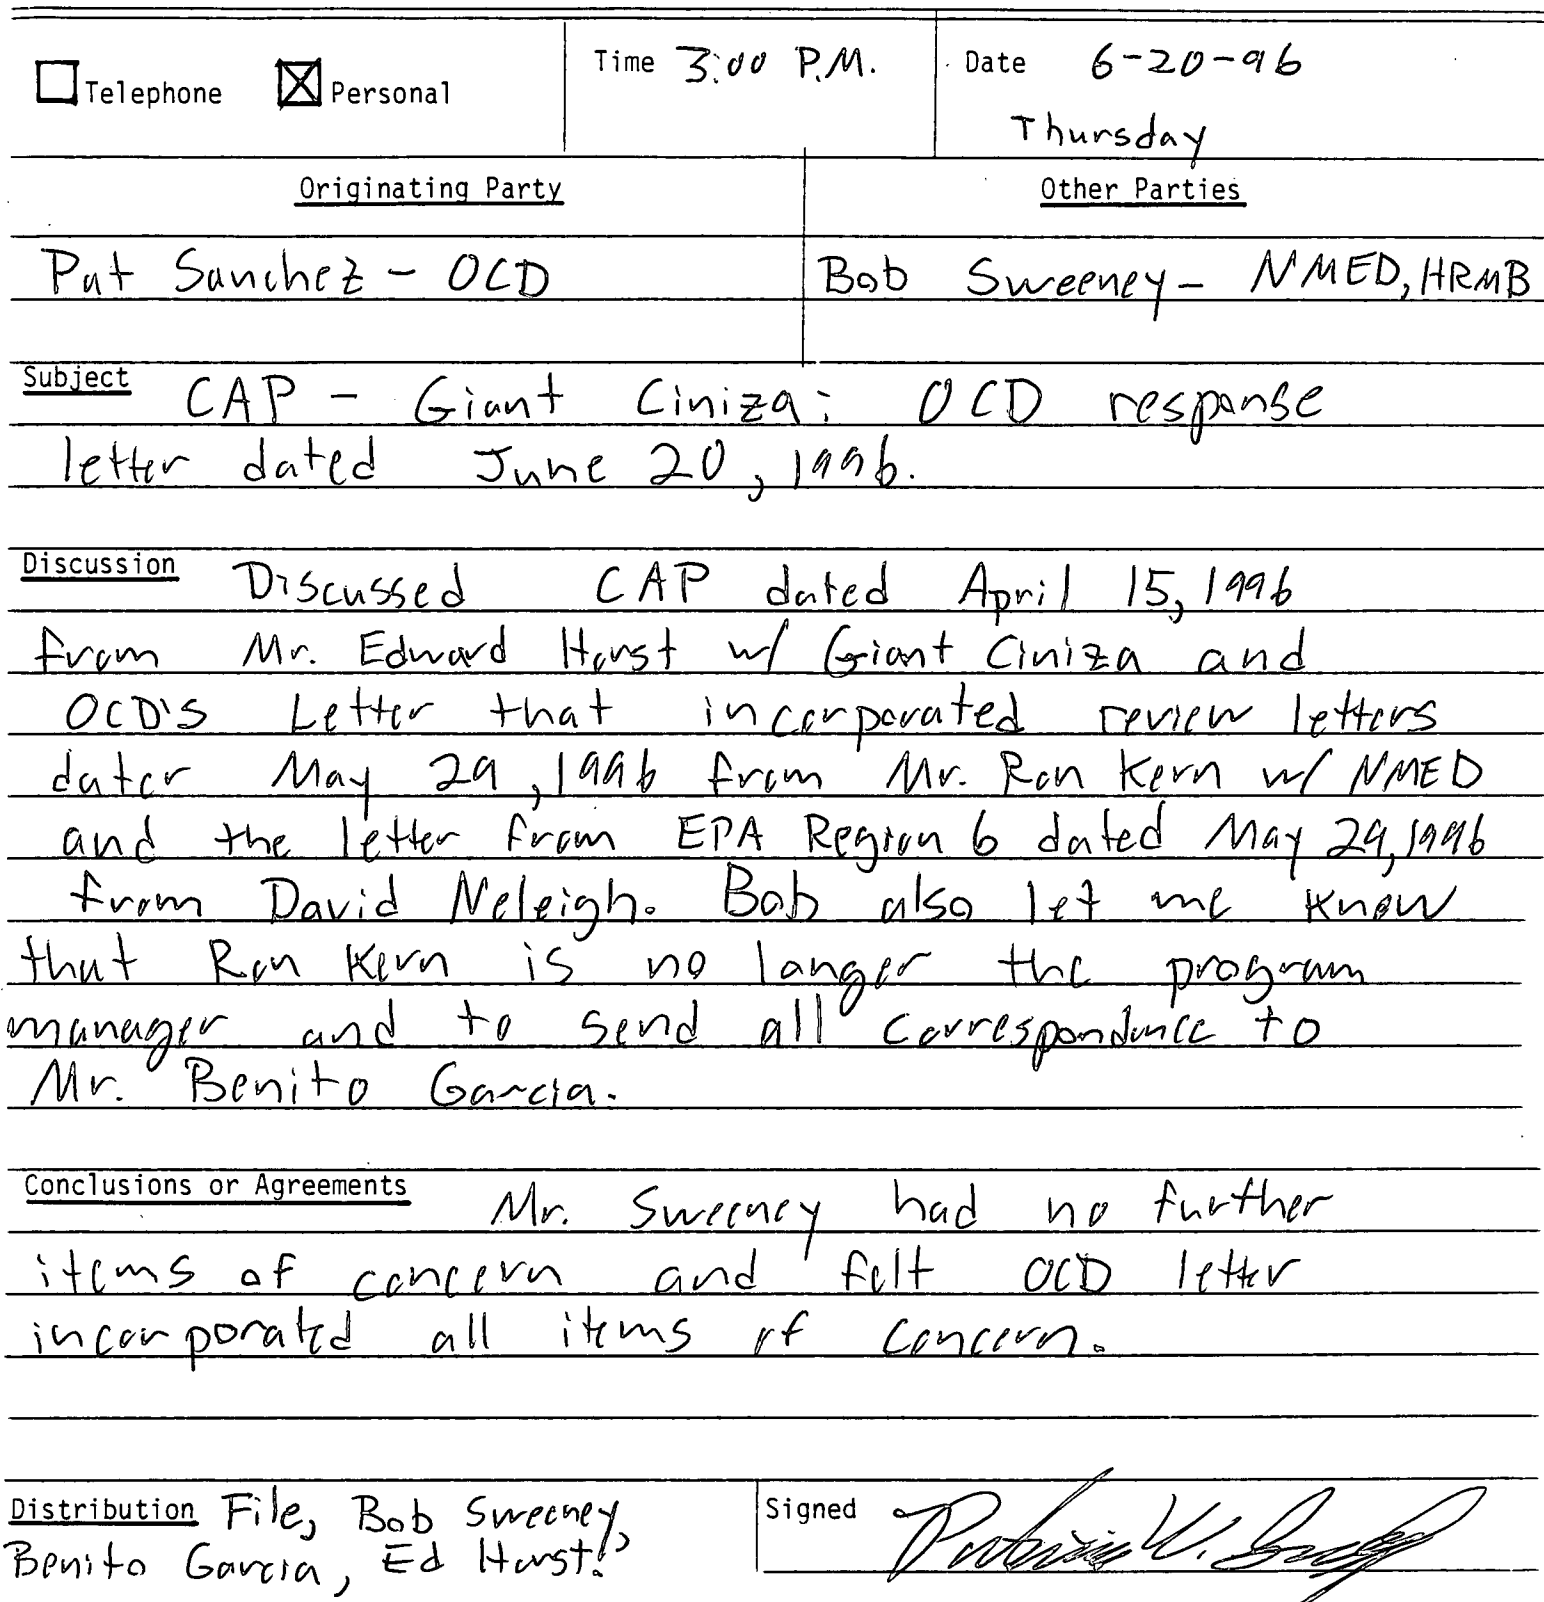 Telephone Personal Time 3:00 P.M. Date 6-20-96
Thursday
Originating Party Other Parties
Pat Sanchez - OCD Bob Sweeney - NMED, HRMB
Subject CAP - Giant Ciniza: OCD response
letter dated June 20, 1996.
Discussion Discussed CAP dated April 15, 1996
from Mr. Edward Horst w/ Giant Ciniza and
OCD's Letter that incorporated review letters
dater May 29, 1996 from Mr. Ron Kern w/ NMED
and the letter from EPA Region 6 dated May 29, 1996
from David Neleigh. Bob also let me know
that Ron Kern is no longer the program
manager and to send all correspondance to
Mr. Benito Garcia.
Conclusions or Agreements Mr. Sweeney had no further
items of concern and felt OCD letter
incorporated all items of concern.
Distribution File, Bob Sweeney, Signed
Benito Garcia, Ed Horst.